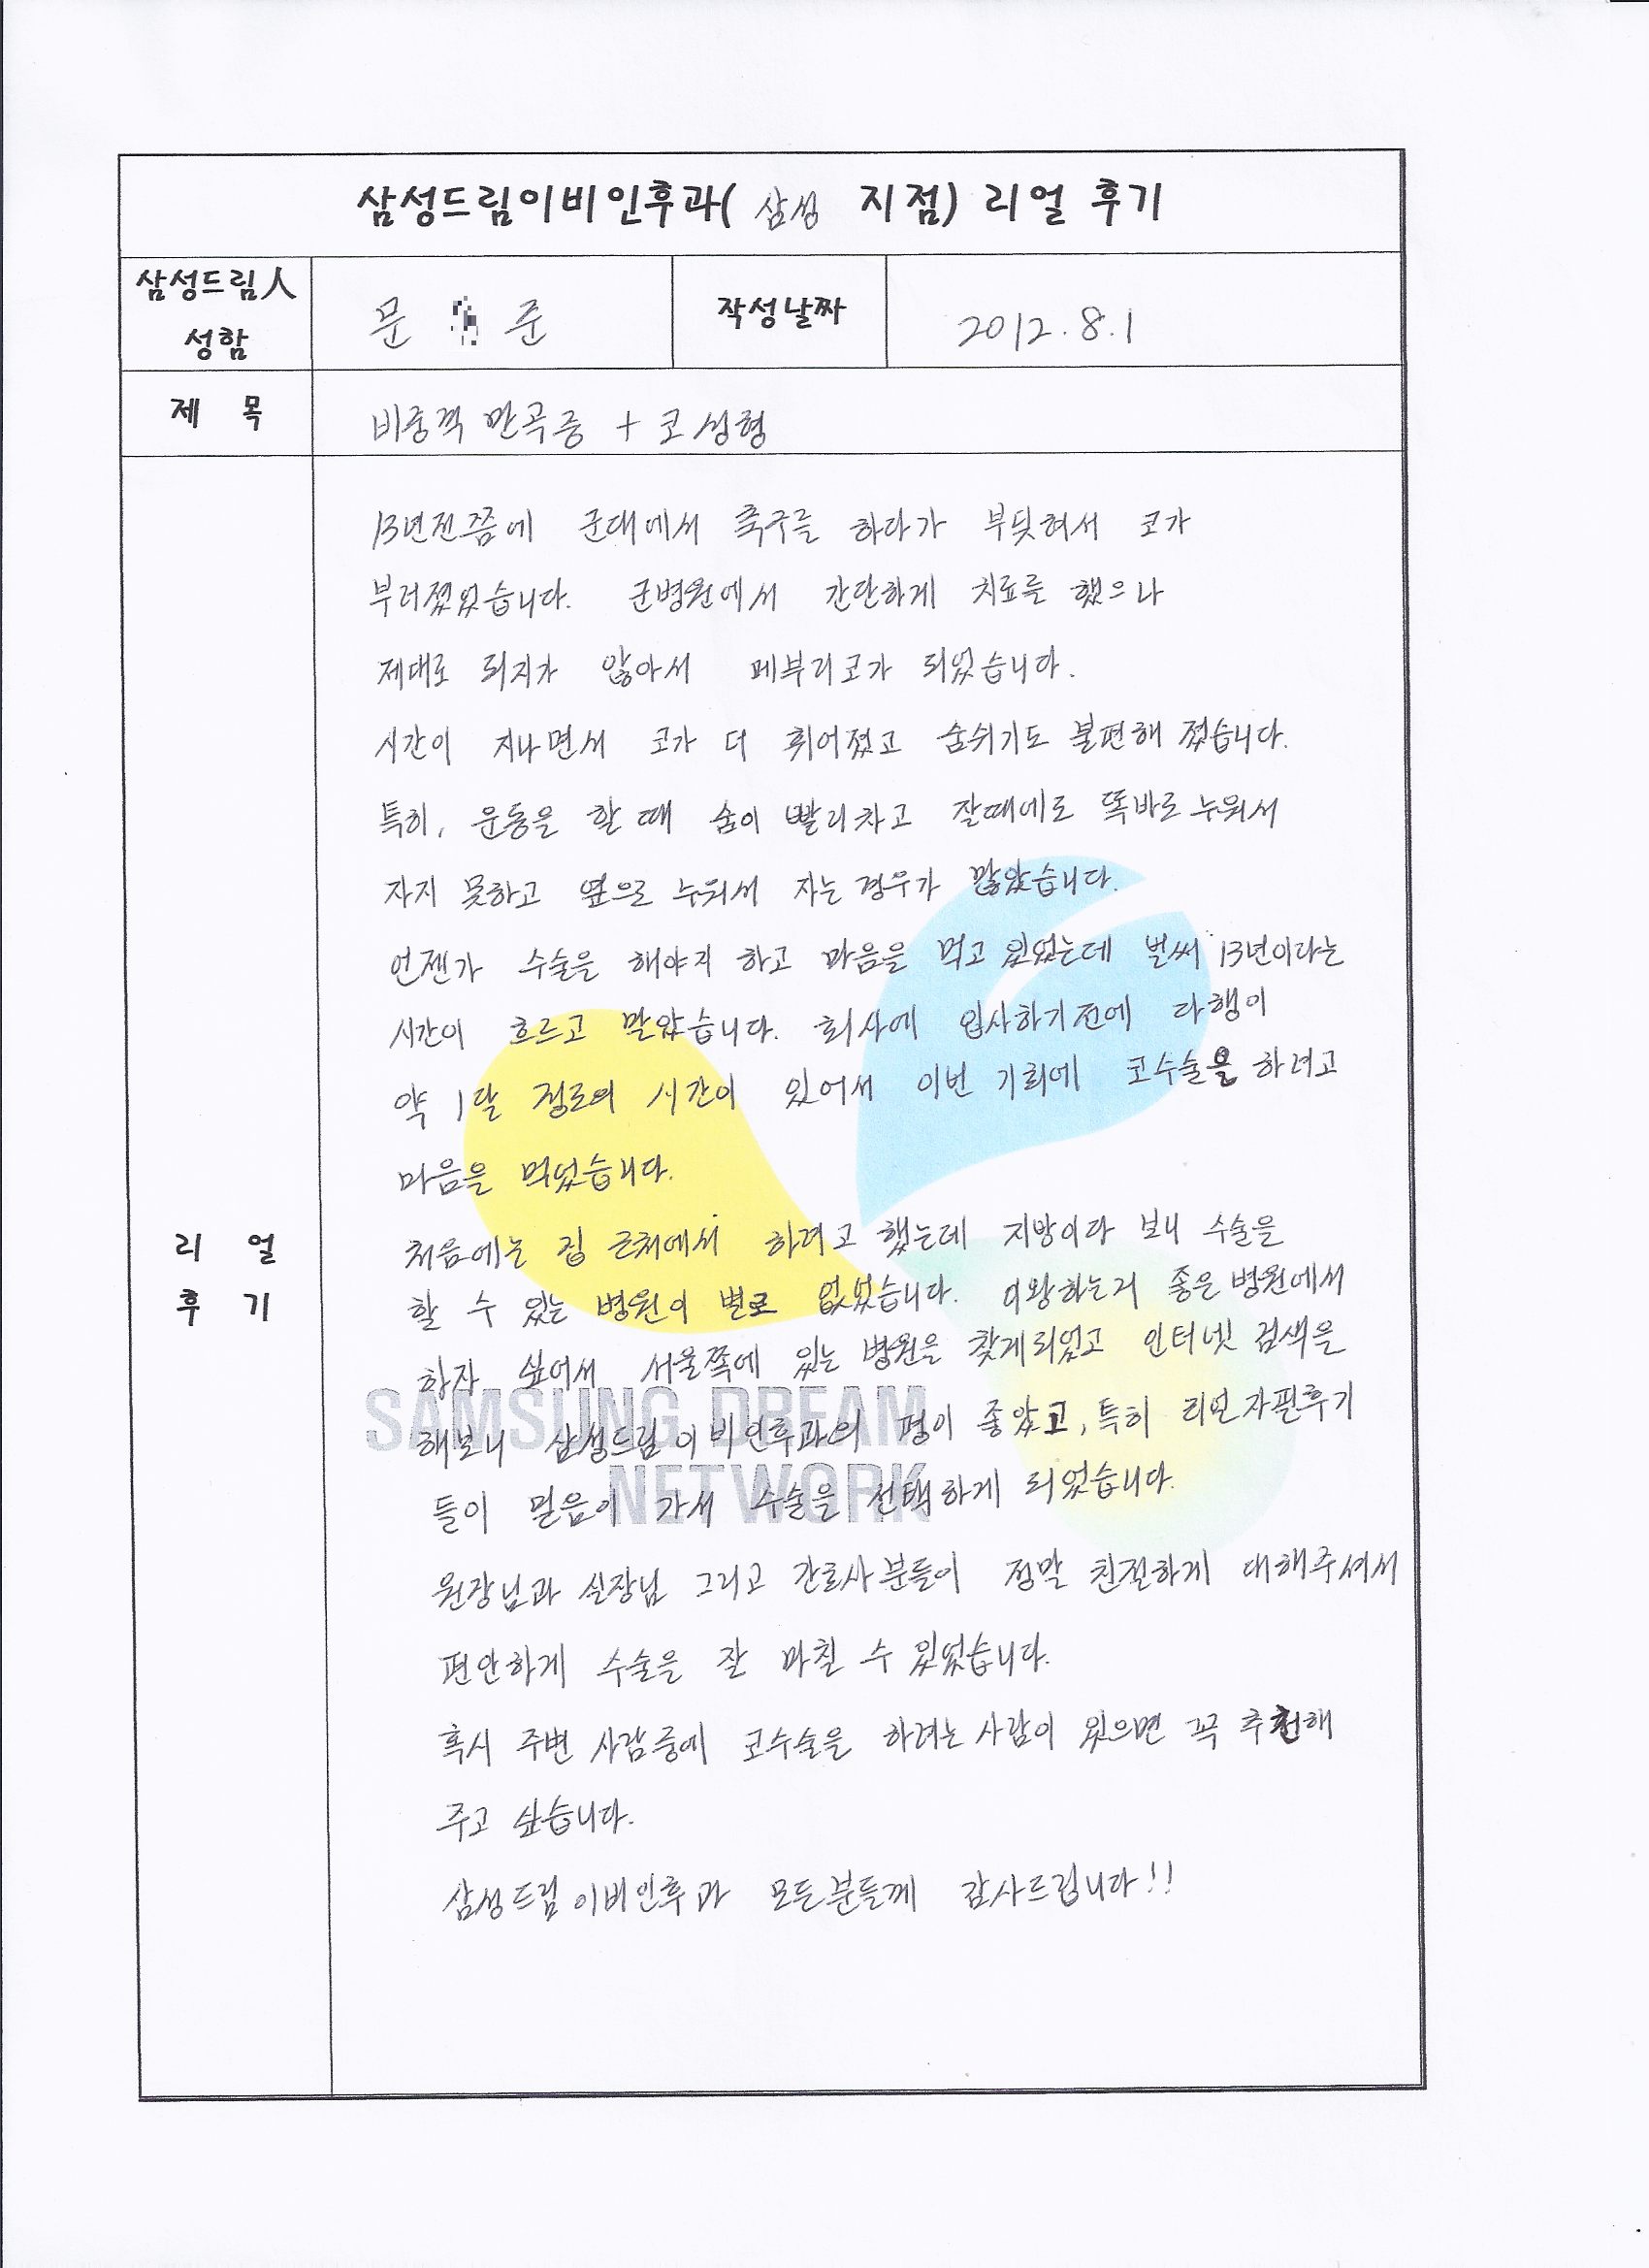 삼성드림이비인후과( 삼성 지점) 리얼 후기
삼성드림人 성함
문 준
작성날짜
2012.8.1
제 목
비중격 만곡증 + 코성형
리 얼 후 기
13년전쯤에 군대에서 축구를 하다가 부딪혀서 코가
부러졌었습니다. 군병원에서 간단하게 치료를 했으나
제대로 되지가 않아서 메부리코가 되었습니다.
시간이 지나면서 코가 더 휘어졌고 숨쉬기도 불편해 졌습니다.
특히, 운동을 할 때 숨이 빨리차고 잘때에도 똑바로 누워서
자지 못하고 옆으로 누워서 자는 경우가 많았습니다.
언젠가 수술을 해야지 하고 마음을 먹고 있었는데 벌써 13년이라는
시간이 흐르고 말았습니다. 회사에 입사하기전에 다행이
약 1달 정도의 시간이 있어서 이번 기회에 코수술을 하려고
마음을 먹었습니다.
처음에는 집 근처에서 하려고 했는데 지방이다 보니 수술을
할 수 있는 병원이 별로 없었습니다. 이왕하는거 좋은 병원에서
하자 싶어서 서울쪽에 있는 병원을 찾게되었고 인터넷 검색을
해보니 삼성드림이비인후과의 평이 좋았고, 특히 리얼자필후기
들이 믿음이 가서 수술을 선택하게 되었습니다.
원장님과 실장님 그리고 간호사분들이 정말 친절하게 대해주셔서
편안하게 수술을 잘 마칠 수 있었습니다.
혹시 주변 사람중에 코수술을 하려는 사람이 있으면 꼭 추천해
주고 싶습니다.
삼성드림이비인후과 모든분들께 감사드립니다!!
SAMSUNG DREAM
NETWORK